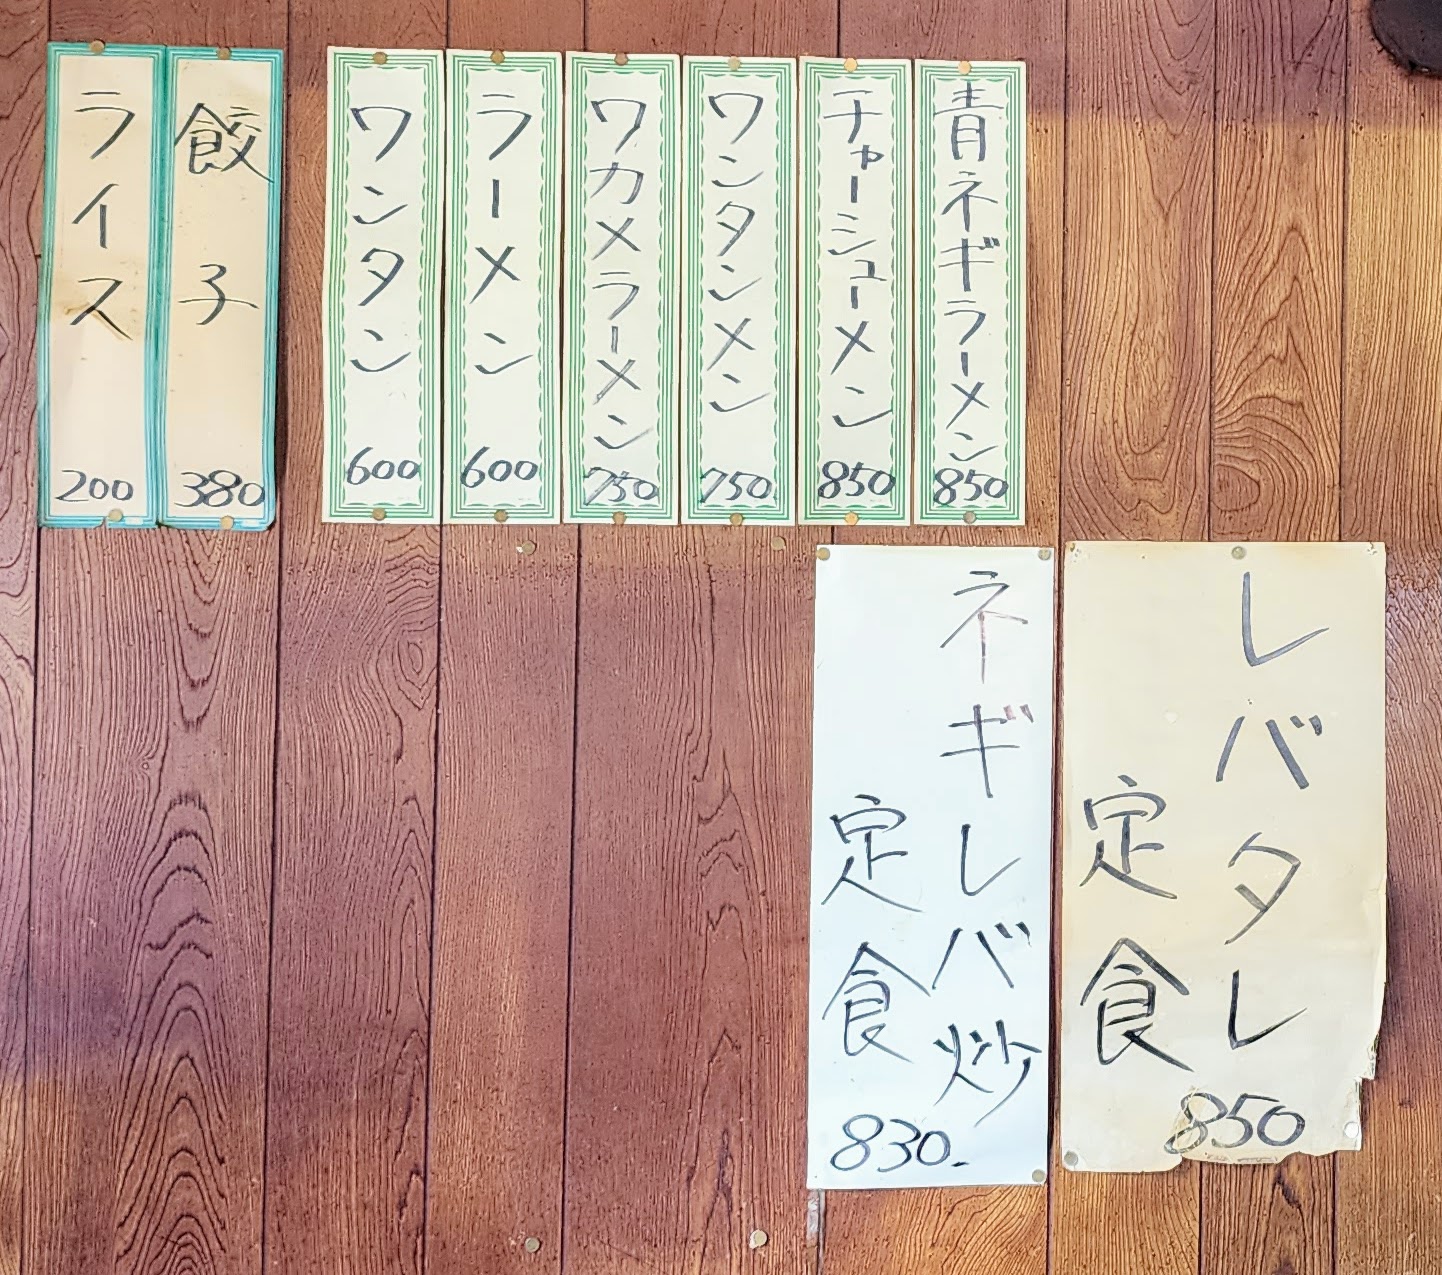 青ネギラーメン
850
チャーシューメン
850
ワンタンメン
750
ワカメラーメン
750
ラーメン
600
ワンタン
600
餃子
380
ライス
200
レバタレ
定食
850
ネギレバ炒
定食
830.